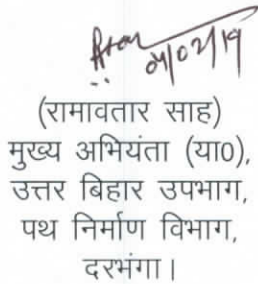 04/02/19
(रामावतार साह)
मुख्य अभियंता (या0),
उत्तर बिहार उपभाग,
पथ निर्माण विभाग,
दरभंगा।